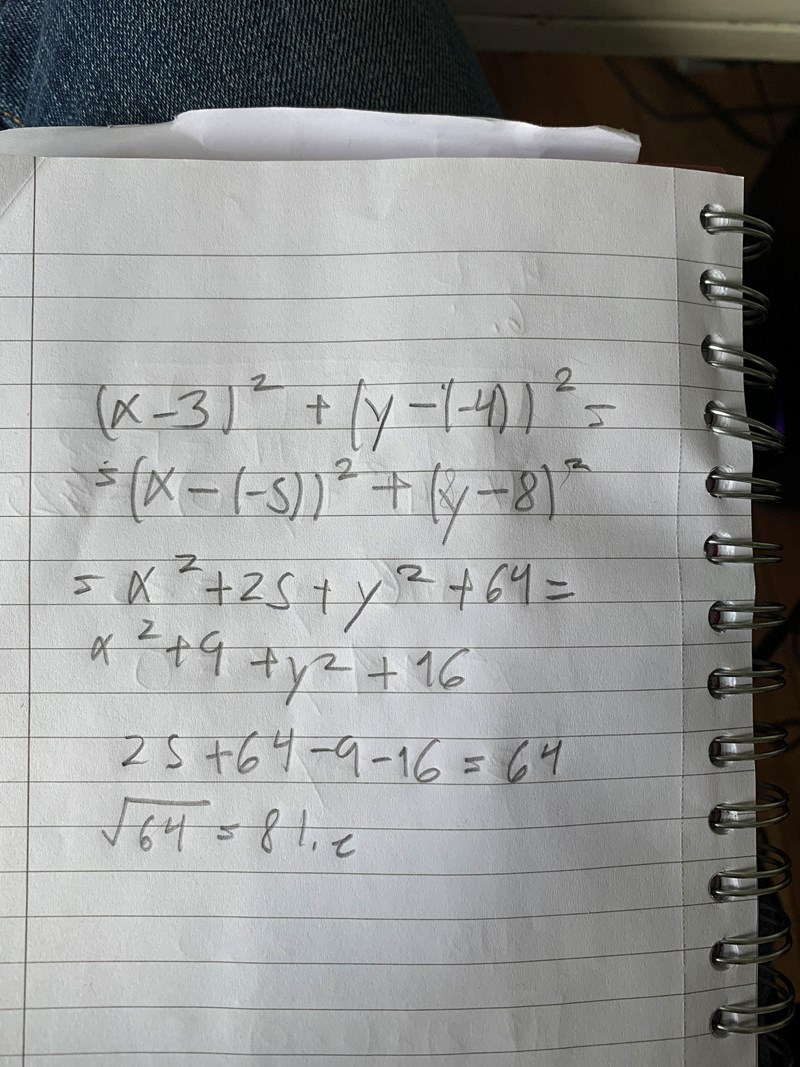 (x-3)² + (y-(-4))² =
= (x-(-5))² + (y-8)²
= x² + 25 + y² + 64 =
x² + 9 + y² + 16
25 + 64 - 9 - 16 = 64
√64 = 8 l.e